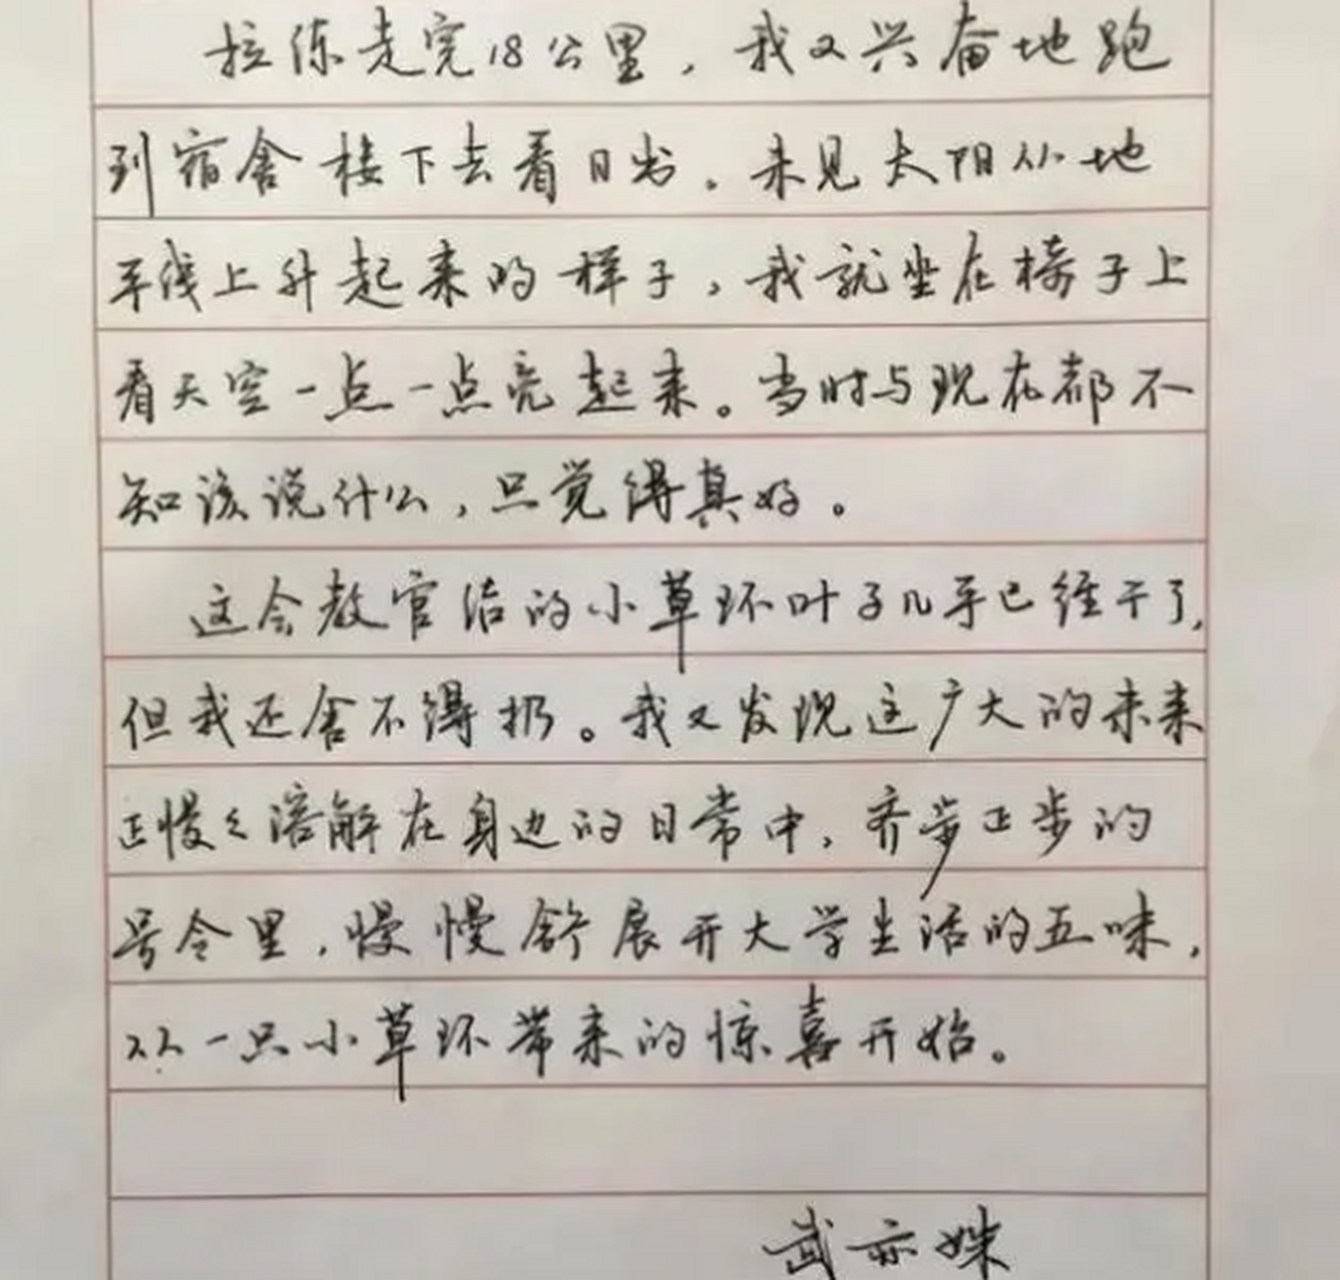 拉练走完18公里，我又兴奋地跑
到宿舍楼下去看日出。未见太阳从地
平线上升起来的样子，我就坐在椅子上
看天空一点一点亮起来。当时与现在都不
知该说什么，只觉得真好。
这会教官给的小草环叶子几乎已经干了，
但我还舍不得扔。我又发现这广大的未来
正慢慢溶解在身边的日常中，齐步正步的
号令里，慢慢舒展开大学生活的五味，
从一只小草环带来的惊喜开始。
武亦姝